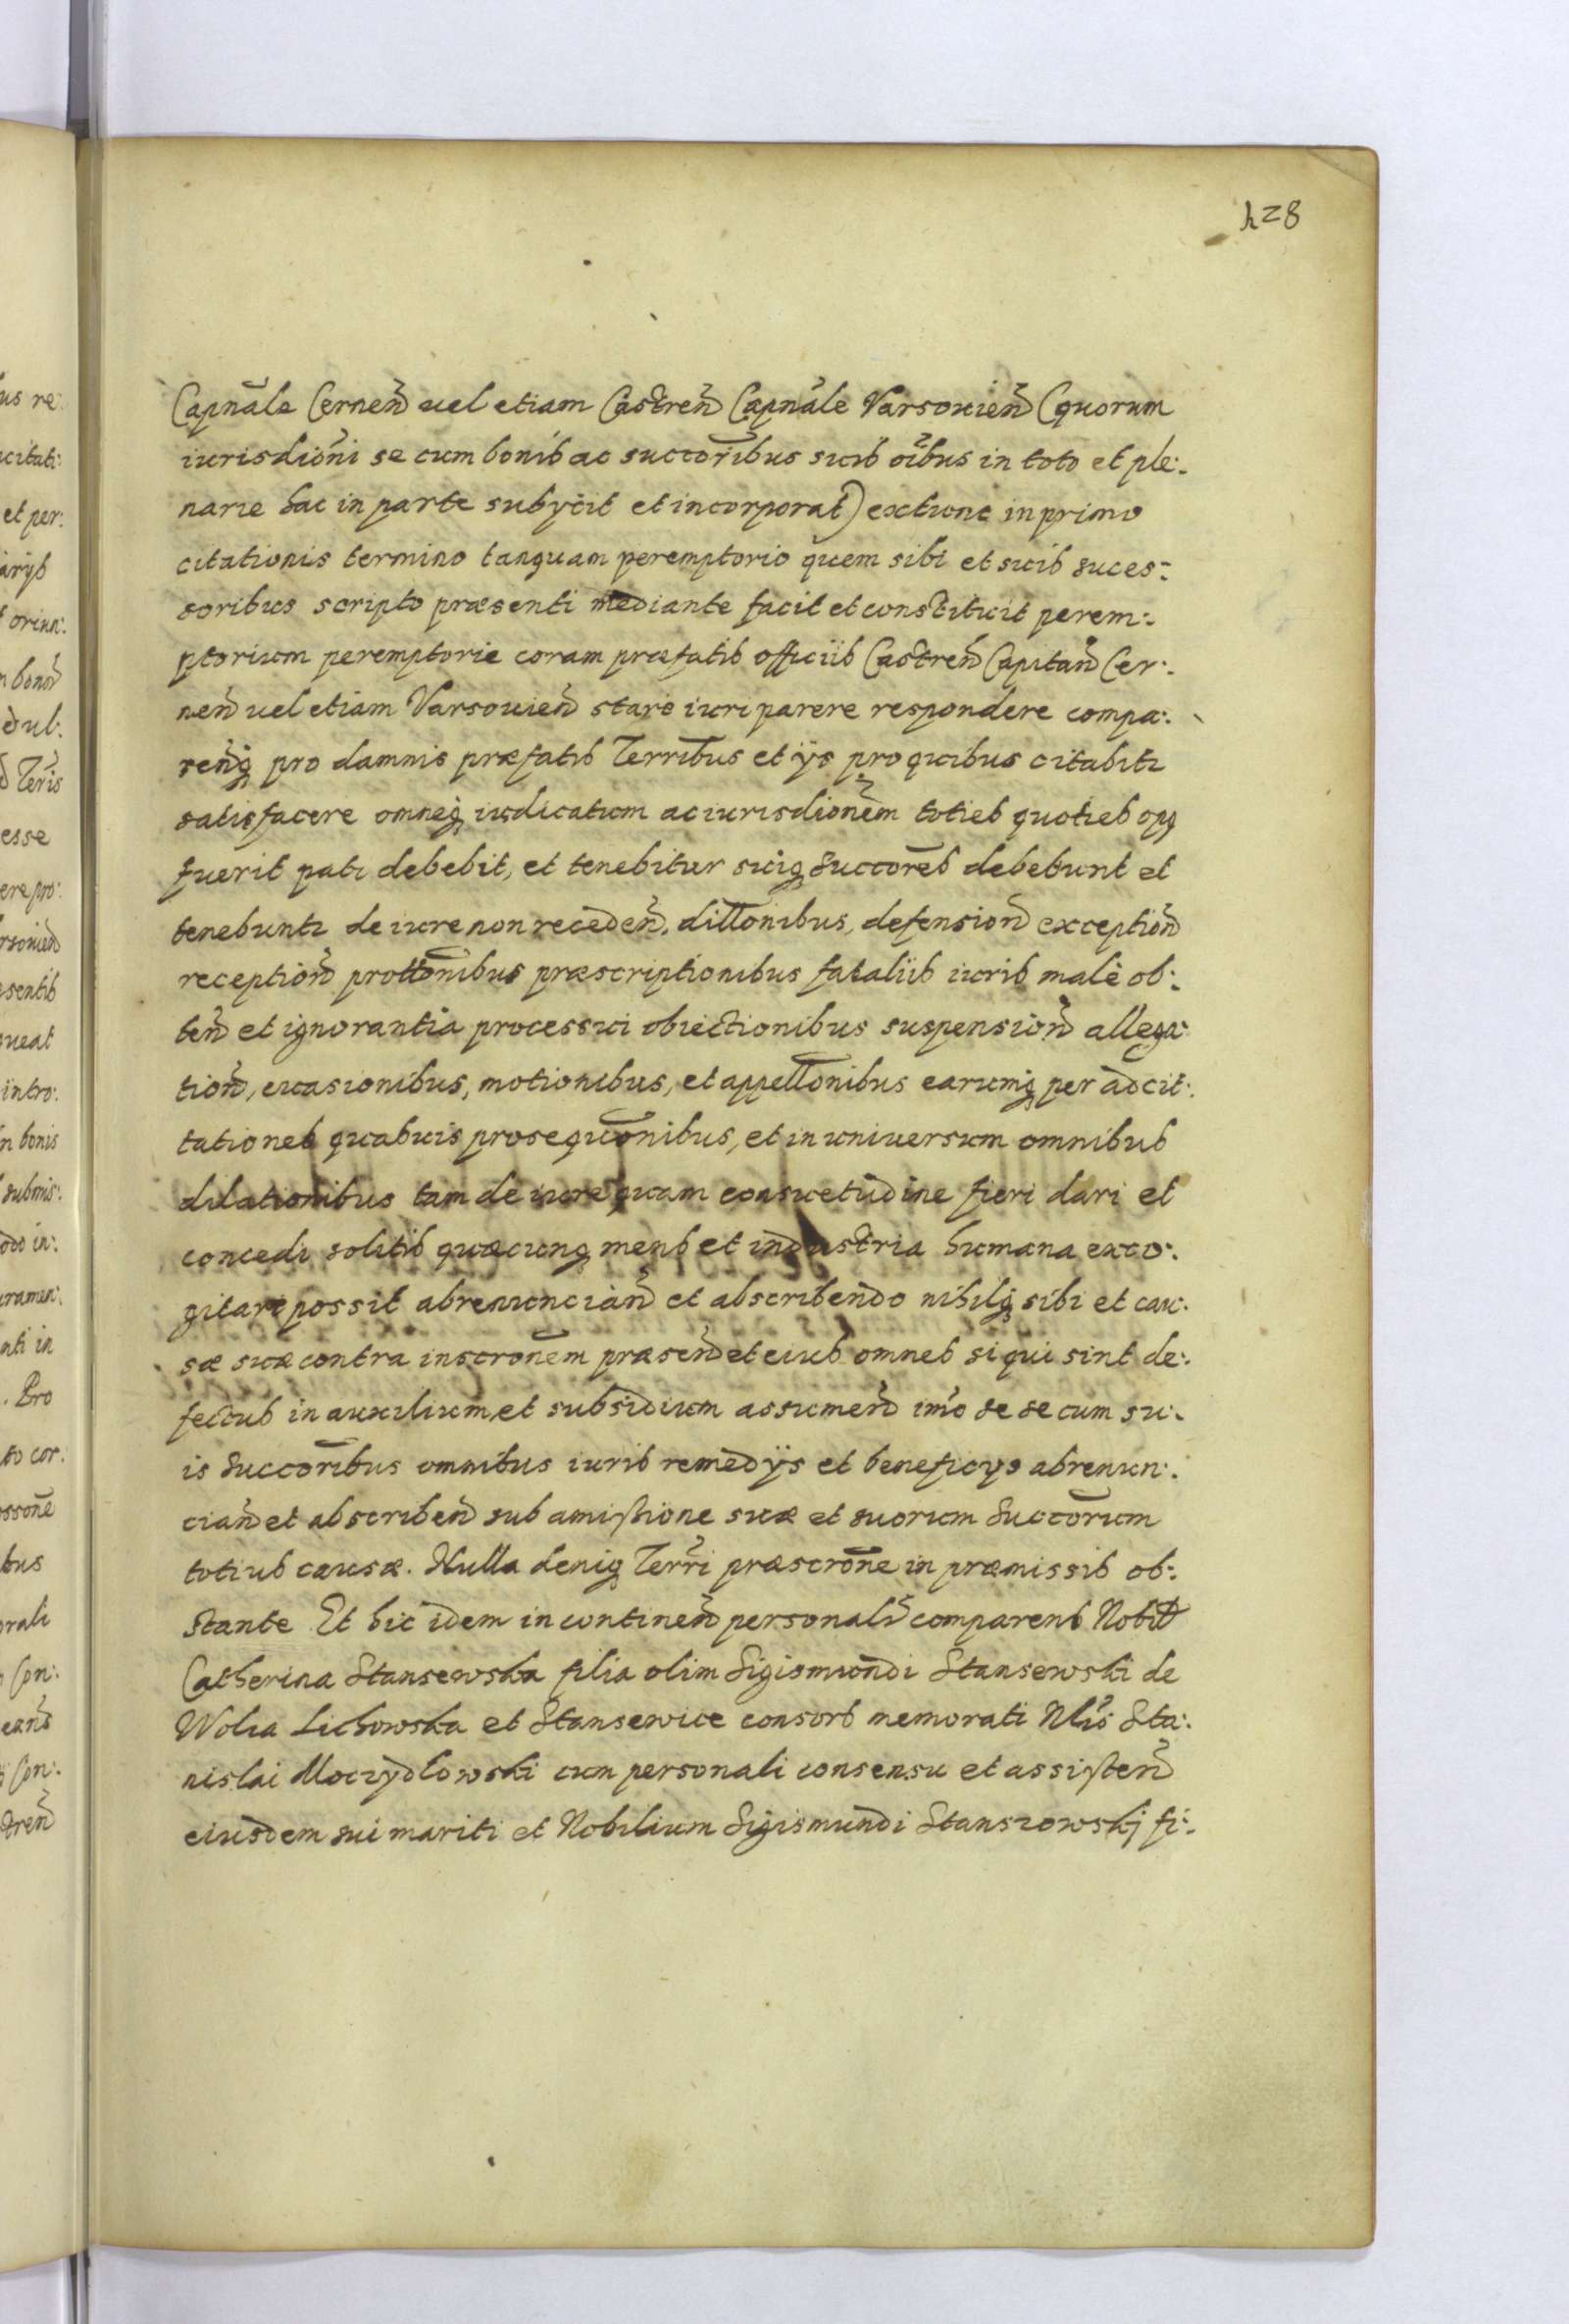 428
Capnāle Cernen̄ uel etiam Castren̄ Capnāle Varsouien̄ (quorum
iurisdioñi se cum bonis ac succor̄ibus suis oĩbus in toto et ple:
narie hac in parte subÿcit et incorporat) extunc in primo
citationis termino tanquam peremptorio quem sibi et suis suces:
soribus scripto præsenti mediante facit et constituit perem:
ptorium peremptorie coram præfatis officiis Castren̄ Capitan̄ Cer:
nen̄ uel etiam Varsouien̄ stare iuri parere respondere compa:
renq̨ pro damnis præfatis Terribus et ÿs pro quibus citabitr
satisfacere omneq̨ iudicatum ac iurisdionēm toties quoties opq̨
fuerit pati debebit, et tenebitur suiq̨ succores debebunt et
tenebuntr de iure non receden̄. dillonibus, defension̄ exception̄
reception̄ prottonibus præscriptionibus fataliis iuris malè ob:
ten̄ et ignorantia processui obiectionibus suspension̄ allega:
tion̄, euasionibus, motionibus, et appellonibus earumq̨ per adcit:
tationes quasuis prosequōnibus, et in uniuersum omnibus
dilationibus tam de iure quam consuetudine fieri dari et
concedi solitis quæcunq̨ mens et industria humana exco:
gitare possit abrenuncian̄ et abscribendo nihilq̨ sibi et cau:
sæ suæ contra inscronem præsen̄ et eius omnes si qui sint de:
fectus in auxilium et subsidium assumen̄ imo se se cum su:
is succoribus omnibus iuris remedÿs et beneficÿs abrenun:
cian̄ et abscriben̄ sub amissione suæ et suorum succorum
totius causæ. Nulla deniq̨ Terri præscrōne in præmissis ob:
stante Et hic idem in continen̄ personalr̄ comparens Nobil
Catherina Stansewska filia olim Sigismundi Stansewski de
Wolia Lichowska et Stansewice consors memorati Nlis Sta:
nislai Moczydłowski cum personali consensu et assisten̄
eiusdem sui mariti et Nobilium Sigismundi Stanszowskj fi: